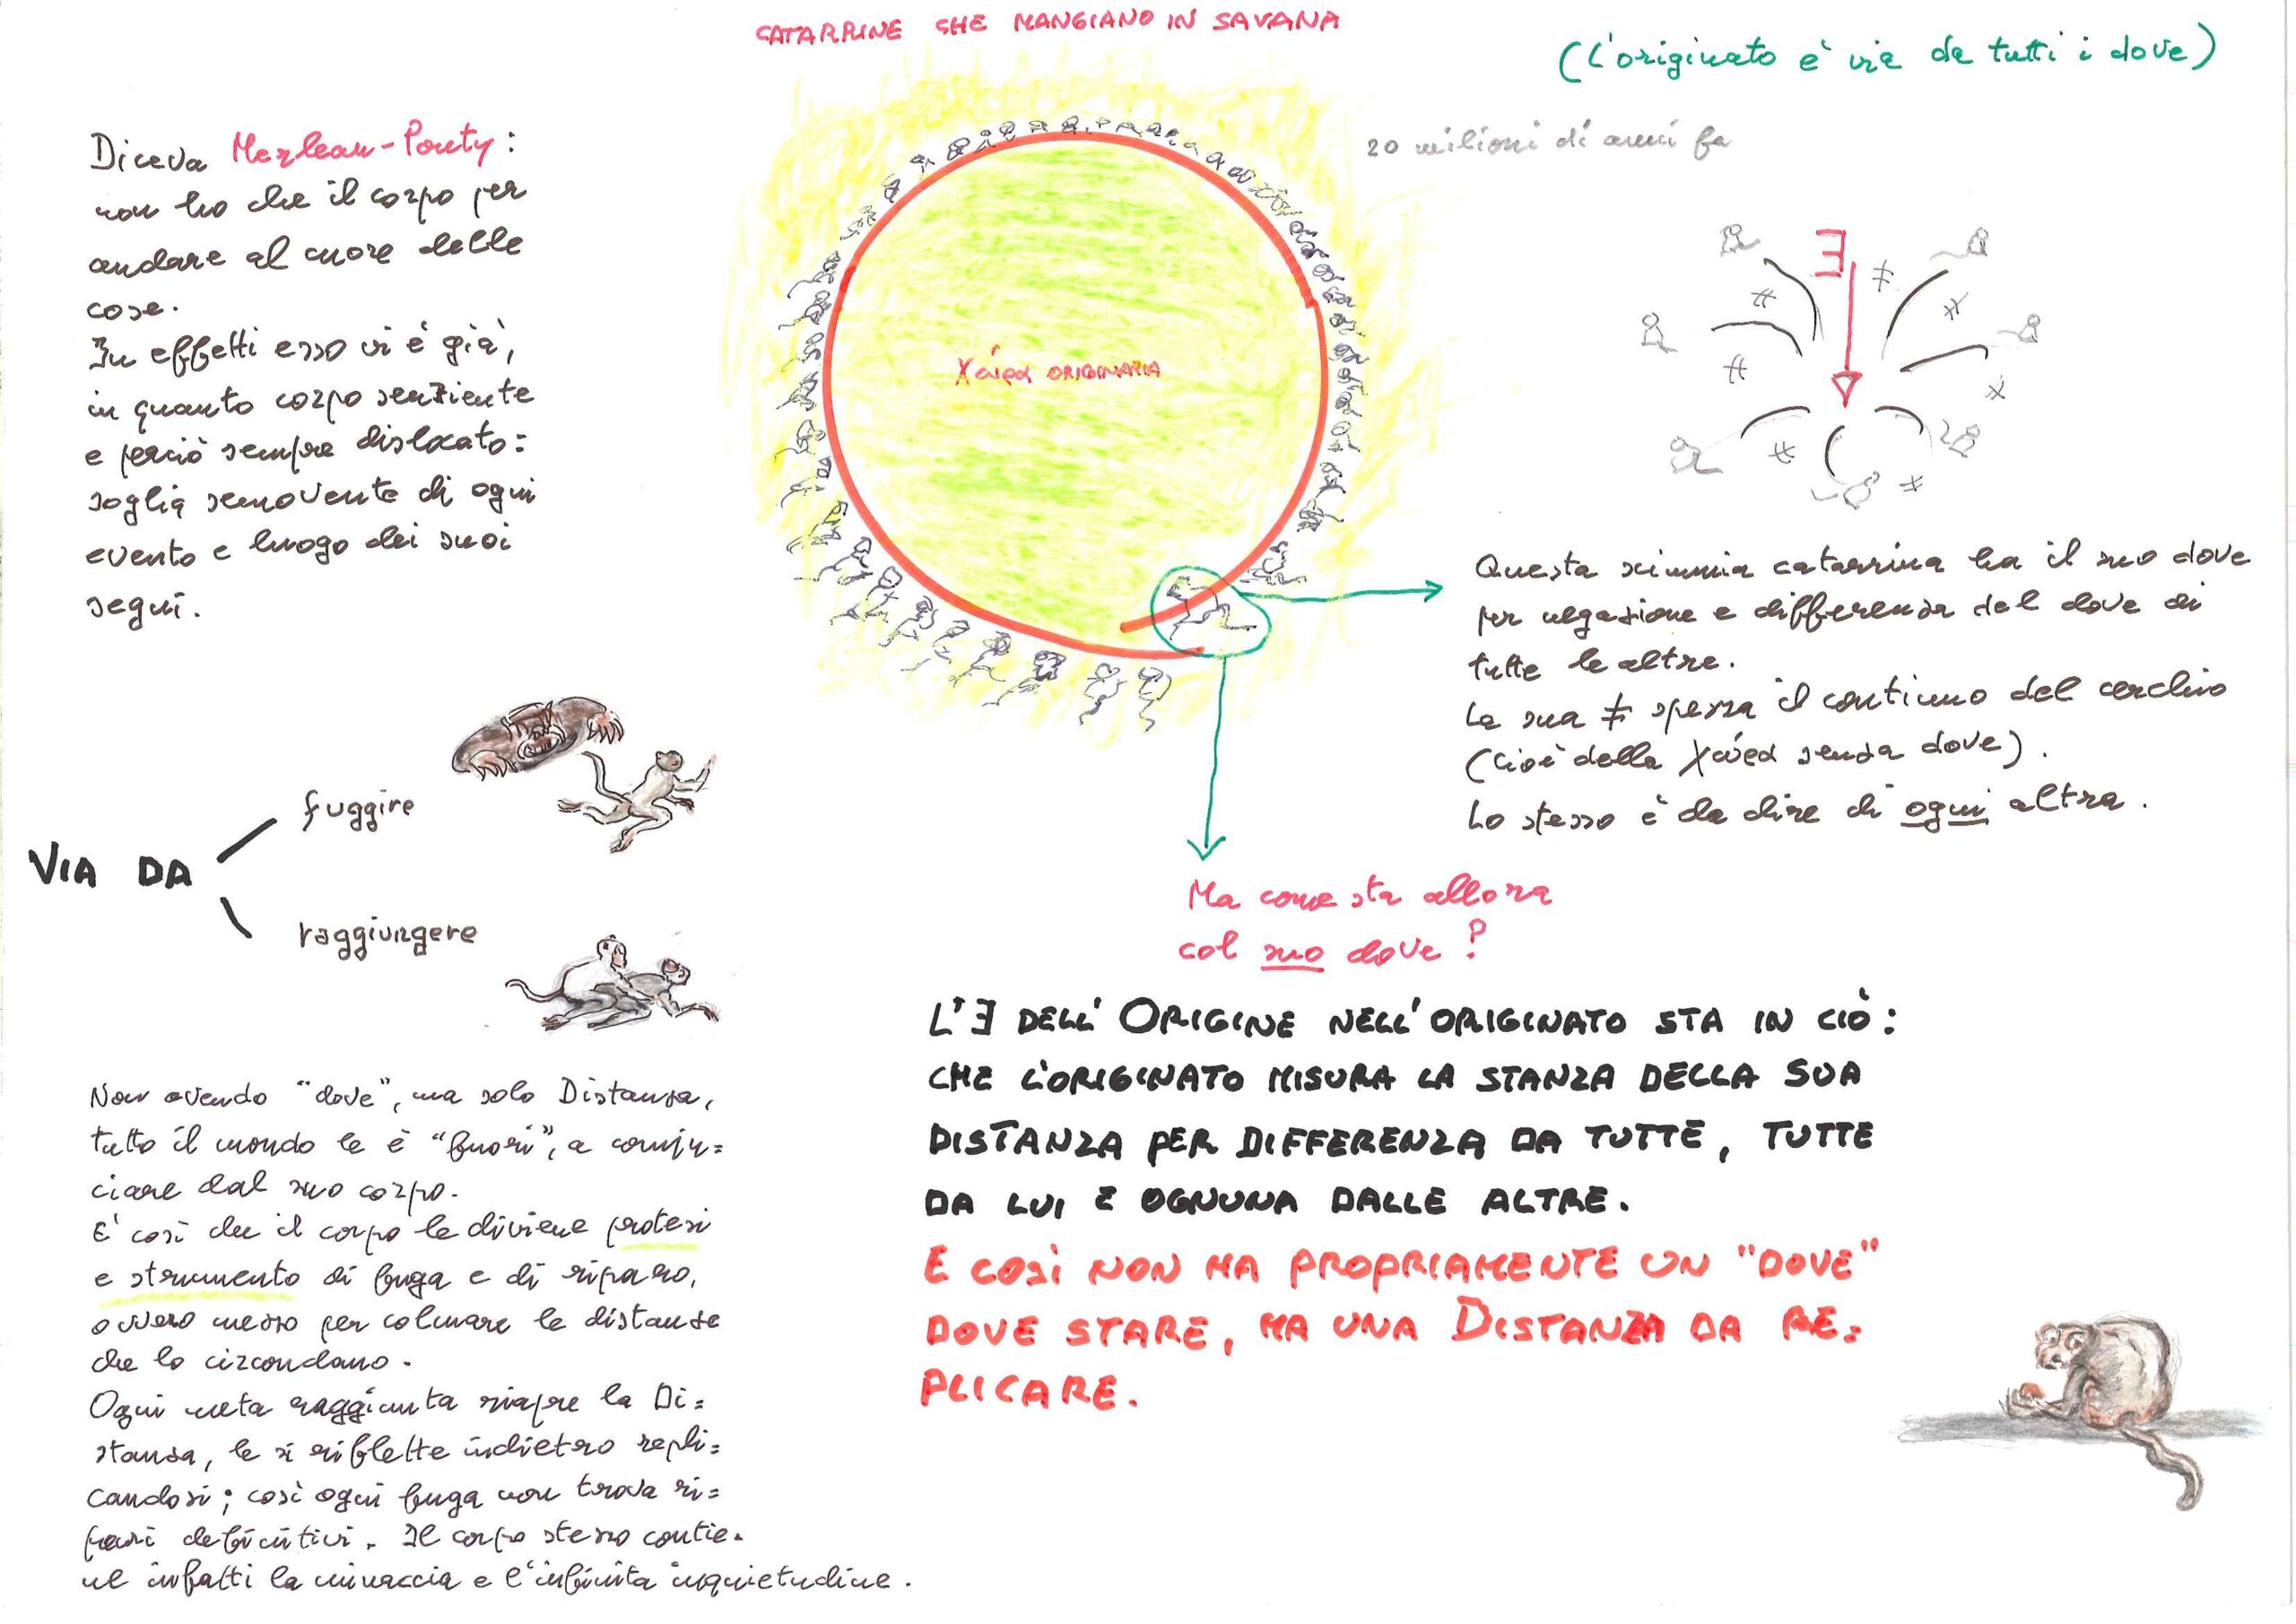 CATARRINE CHE MANGIANO IN SAVANA
(L'originato è via da tutti i dove)
20 milioni di anni fa
Diceva Merleau-Ponty:
non ho che il corpo per
andare al cuore delle
cose.
In effetti esso vi è già,
in quanto corpo senziente
e perciò sempre dislocato:
soglia semovente di ogni
evento e luogo dei suoi
segni.
Χώρα ORIGINARIA
∃
≠
≠
≠
≠
≠
≠
≠
≠
Questa scimmia catarrina ha il suo dove
per negazione e differenza del dove di
tutte le altre.
La sua ≠ spezza il continuo del cerchio
(cioè della Χώρα senza dove).
Lo stesso è da dire di ogni altra.
VIA DA
fuggire
raggiungere
Ma come sta allora
col suo dove?
L'∃ DELL'ORIGINE NELL'ORIGINATO STA IN CIÒ:
CHE L'ORIGINATO MISURA LA STANZA DELLA SUA
DISTANZA PER DIFFERENZA DA TUTTE, TUTTE
DA LUI E OGNUNA DALLE ALTRE.
E COSÌ NON HA PROPRIAMENTE UN "DOVE"
DOVE STARE, MA UNA DISTANZA DA RE=
PLICARE.
Non avendo "dove", ma solo Distanza,
tutto il mondo le è "fuori", a comin=
ciare dal suo corpo.
E' così che il corpo le diviene protesi
e strumento di fuga e di riparo,
ovvero mezzo per colmare le distanze
che lo circondano.
Ogni meta raggiunta riapre la Di=
stanza, le si riflette indietro repli=
candosi; così ogni fuga non trova ri=
pari definitivi. Il corpo stesso contie=
ne infatti la minaccia e l'infinita inquietudine.